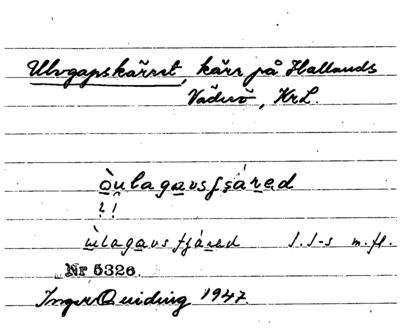 Ulvgapskärret, kärr på Hallands
Väderö, Kr L.
òulagavsfsárad
!!
ùlagavsfjárad S.S-s m.fl.
Nr 5326.
Inger Quiding 1947.